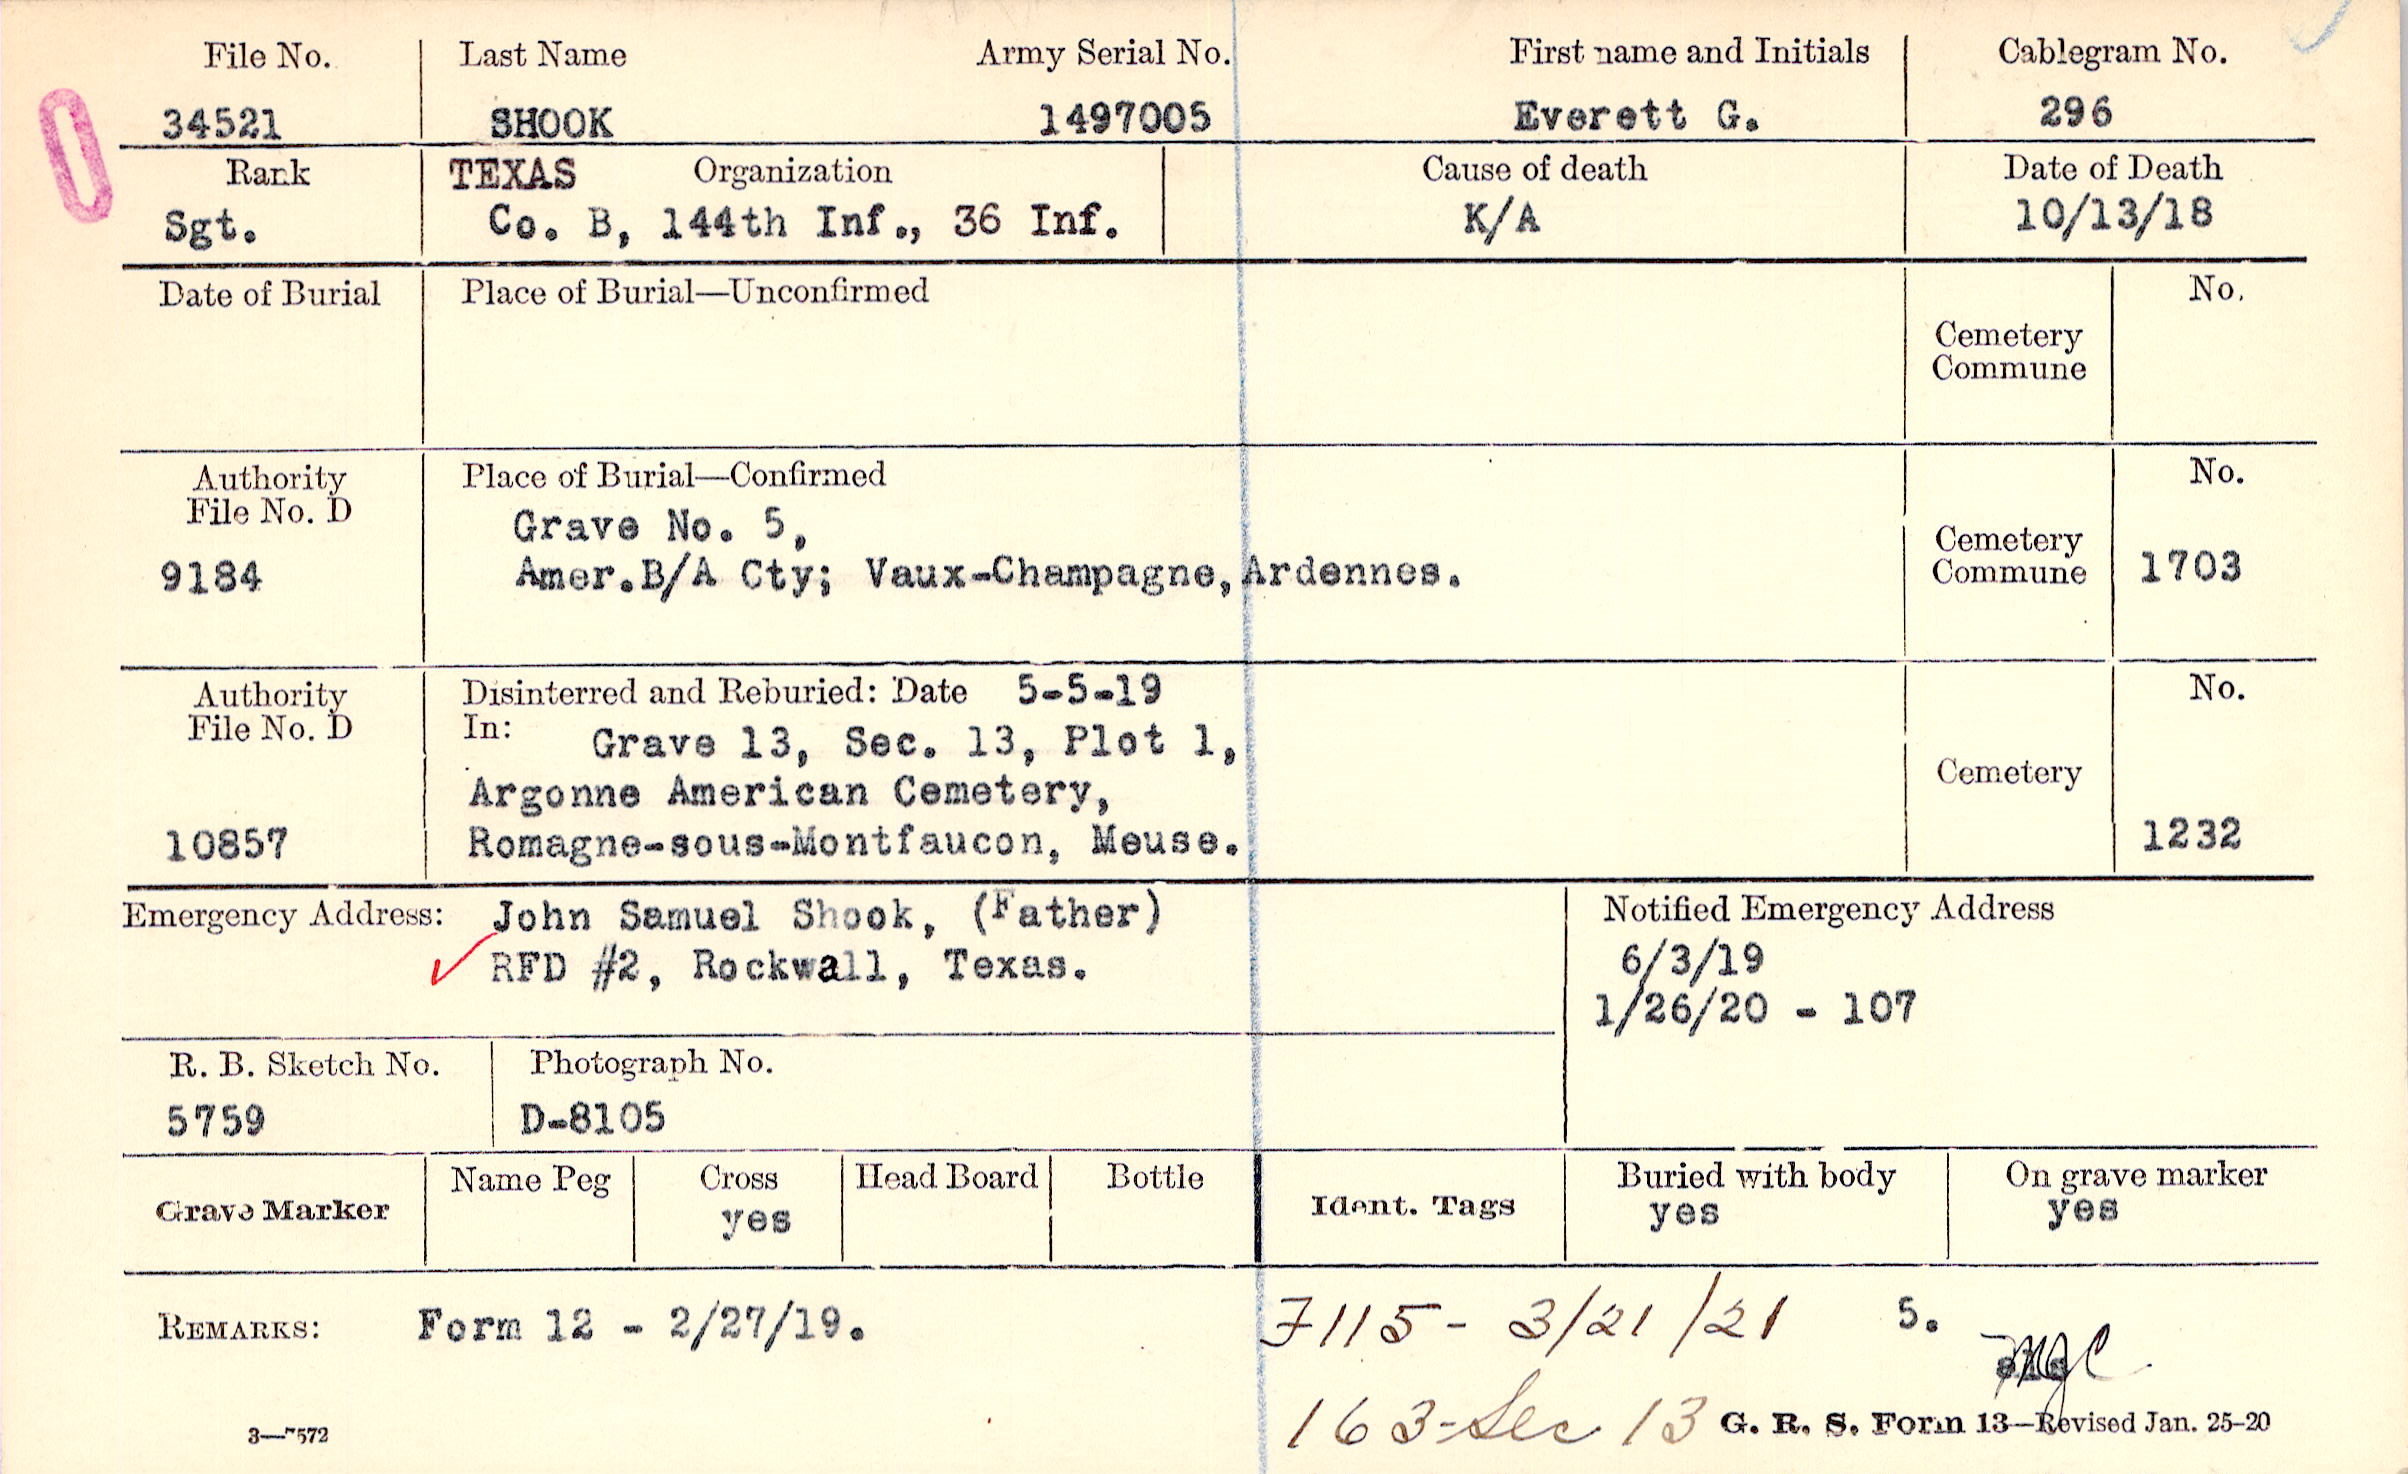 File No. Last Name Army Serial No. First name and Initials Cablegram No.
34521 SHOOK 1497005 Everett G. 296
Rank TEXAS Organization Cause of death Date of Death
Sgt. Co. B, 144th Inf., 36 Inf. K/A 10/13/18
Date of Burial Place of Burial—Unconfirmed No.
Cemetery
Commune
Authority Place of Burial—Confirmed No.
File No. D Grave No. 5, Cemetery
9184 Amer.B/A Cty; Vaux-Champagne, Ardennes. Commune 1703
Authority Disinterred and Reburied: Date 5-5-19 No.
File No. D In: Grave 13, Sec. 13, Plot 1,
Argonne American Cemetery, Cemetery
10857 Romagne-sous-Montfaucon, Meuse. 1232
Emergency Address: John Samuel Shook, (Father) Notified Emergency Address
RFD #2, Rockwall, Texas. 6/3/19
1/26/20 - 107
R. B. Sketch No. Photograph No.
5759 D-8105
Grave Marker Name Peg Cross Head Board Bottle Ident. Tags Buried with body On grave marker
yes yes yes
REMARKS: Form 12 - 2/27/19. 7115 - 3/21/21 5.
163-Sec 13
3—7572 G. R. S. Form 13—Revised Jan. 25-20